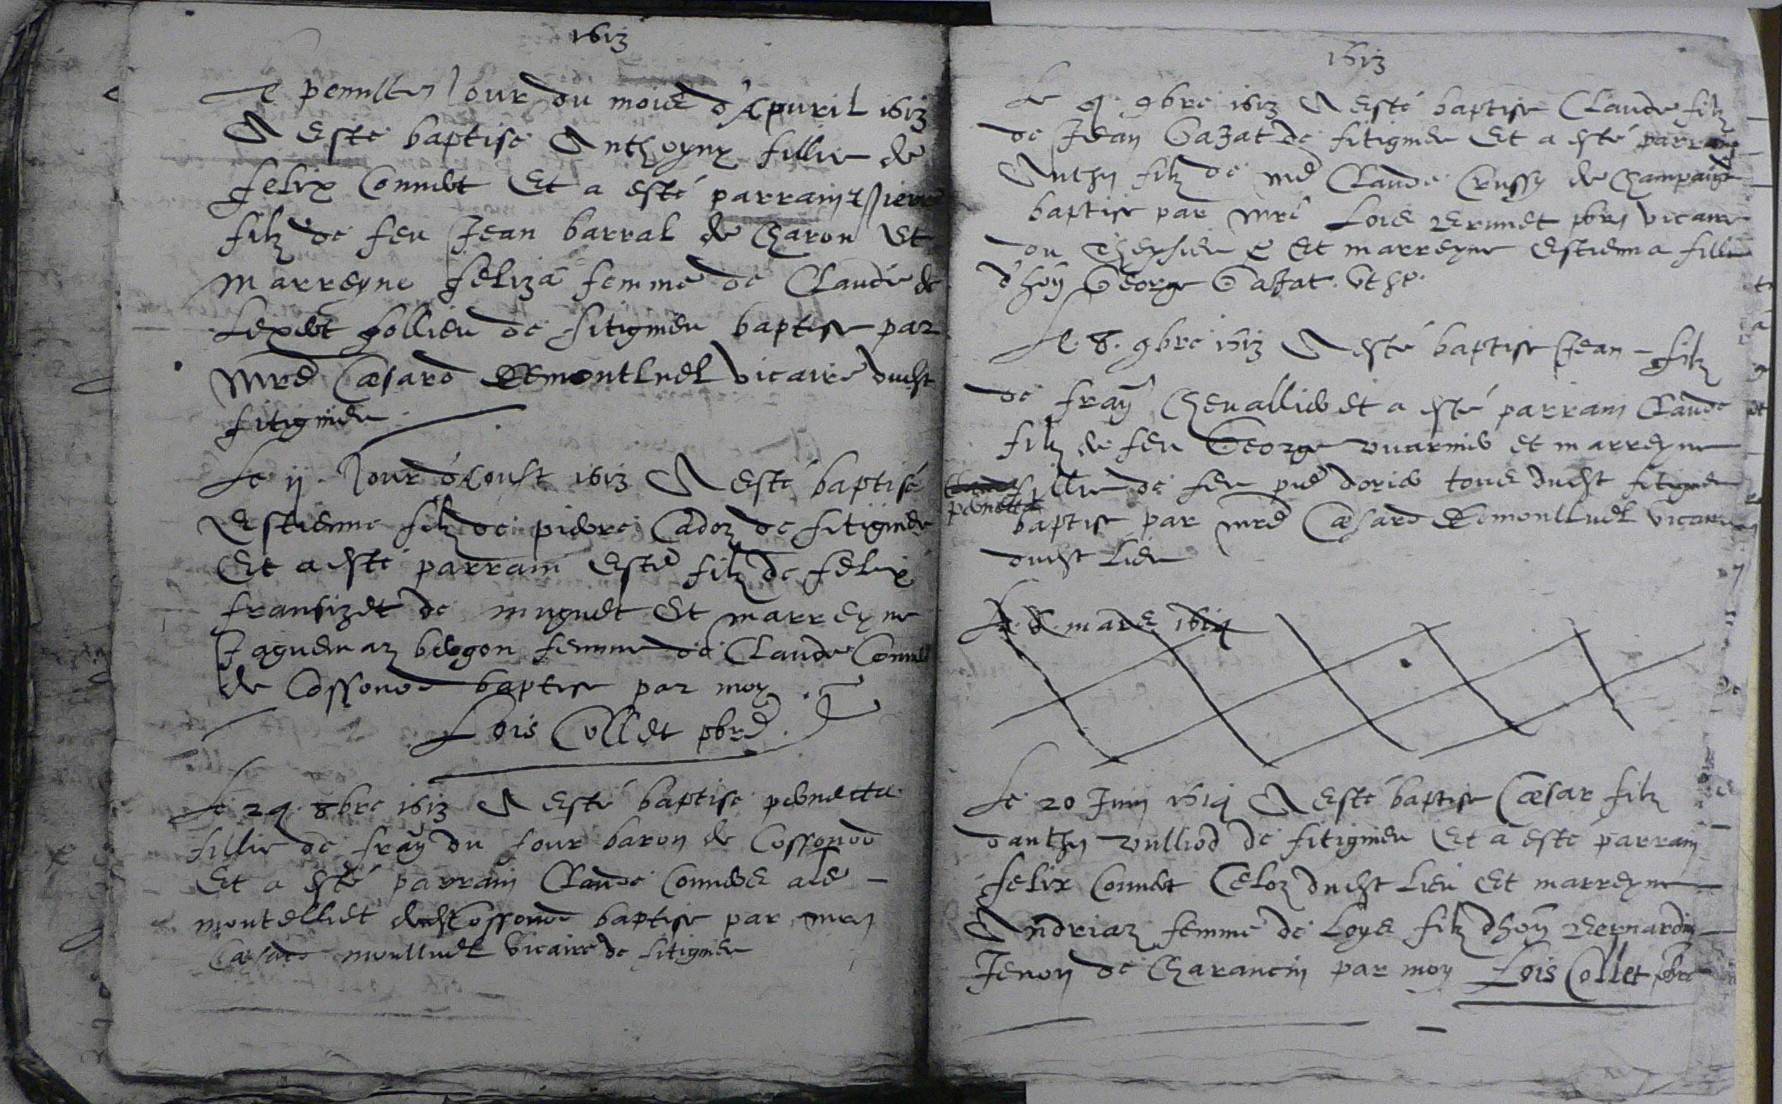 1613
Le penultez Jour du moie d'Apvril 1613
A este baptise Anthoyny fillie de
felix Connet Et a esté parrain pierre
filz de feu Jean barral de Charon Et
marreyne feliza femme de Claude de
follieu de fitignieu baptise par
Mre Cæsard Remontluel vicaire dudict
fitignieu
Le ij Jour d'Aoust 1613 A esté baptisé
Estienne filz de pierre Cadoz de fitignieu
Et a esté parrain Este filz de felix
fransizet de mugnet Et marreyne
Jaquemaz bergon femme de Claude Connet
de Cossonod baptise par moy
Lois Collet pbre
Le 24 8bre 1613 A esté baptise pernette
fillie de fray du four baron de Cossonod
Et a esté parrain Claude Connet alie
montelliet dudict Cossonod baptise par mre
Cæsard montluel Vicaire de fitignieu
1613
Le 4 9bre 1613 A esté baptise Claude filz
de Jean Gazat de fitignieu Et a esté parrain
Anthy filz de me Claude Crussy de Champaigne
baptise par Mre Lois Brunet pbre vicaire
du Et marreyne Estienna fillie
d'hon George Gazat
Le 8 9bre 1613 A esté baptise Jean filz
de fray Chevallier et a esté parrain Claude
filz de feu George vuarnier et marreyne
pernette fillie de feu pre dorier tous dudict fitignieu
baptise par mre Cæsard Remontluel vicaire
dudict Lieu
Le 8 mars 1614
Le 20 Juin 1614 A esté baptise Cæsar filz
d'anthy vulliod de fitignieu Et a esté parrain
felix Connet Teloz dudict Lieu Et marreyne
Andriaz femme de Loys filz d'hon Bernardin
Jenon de Charancin par moy Lois Collet pbre